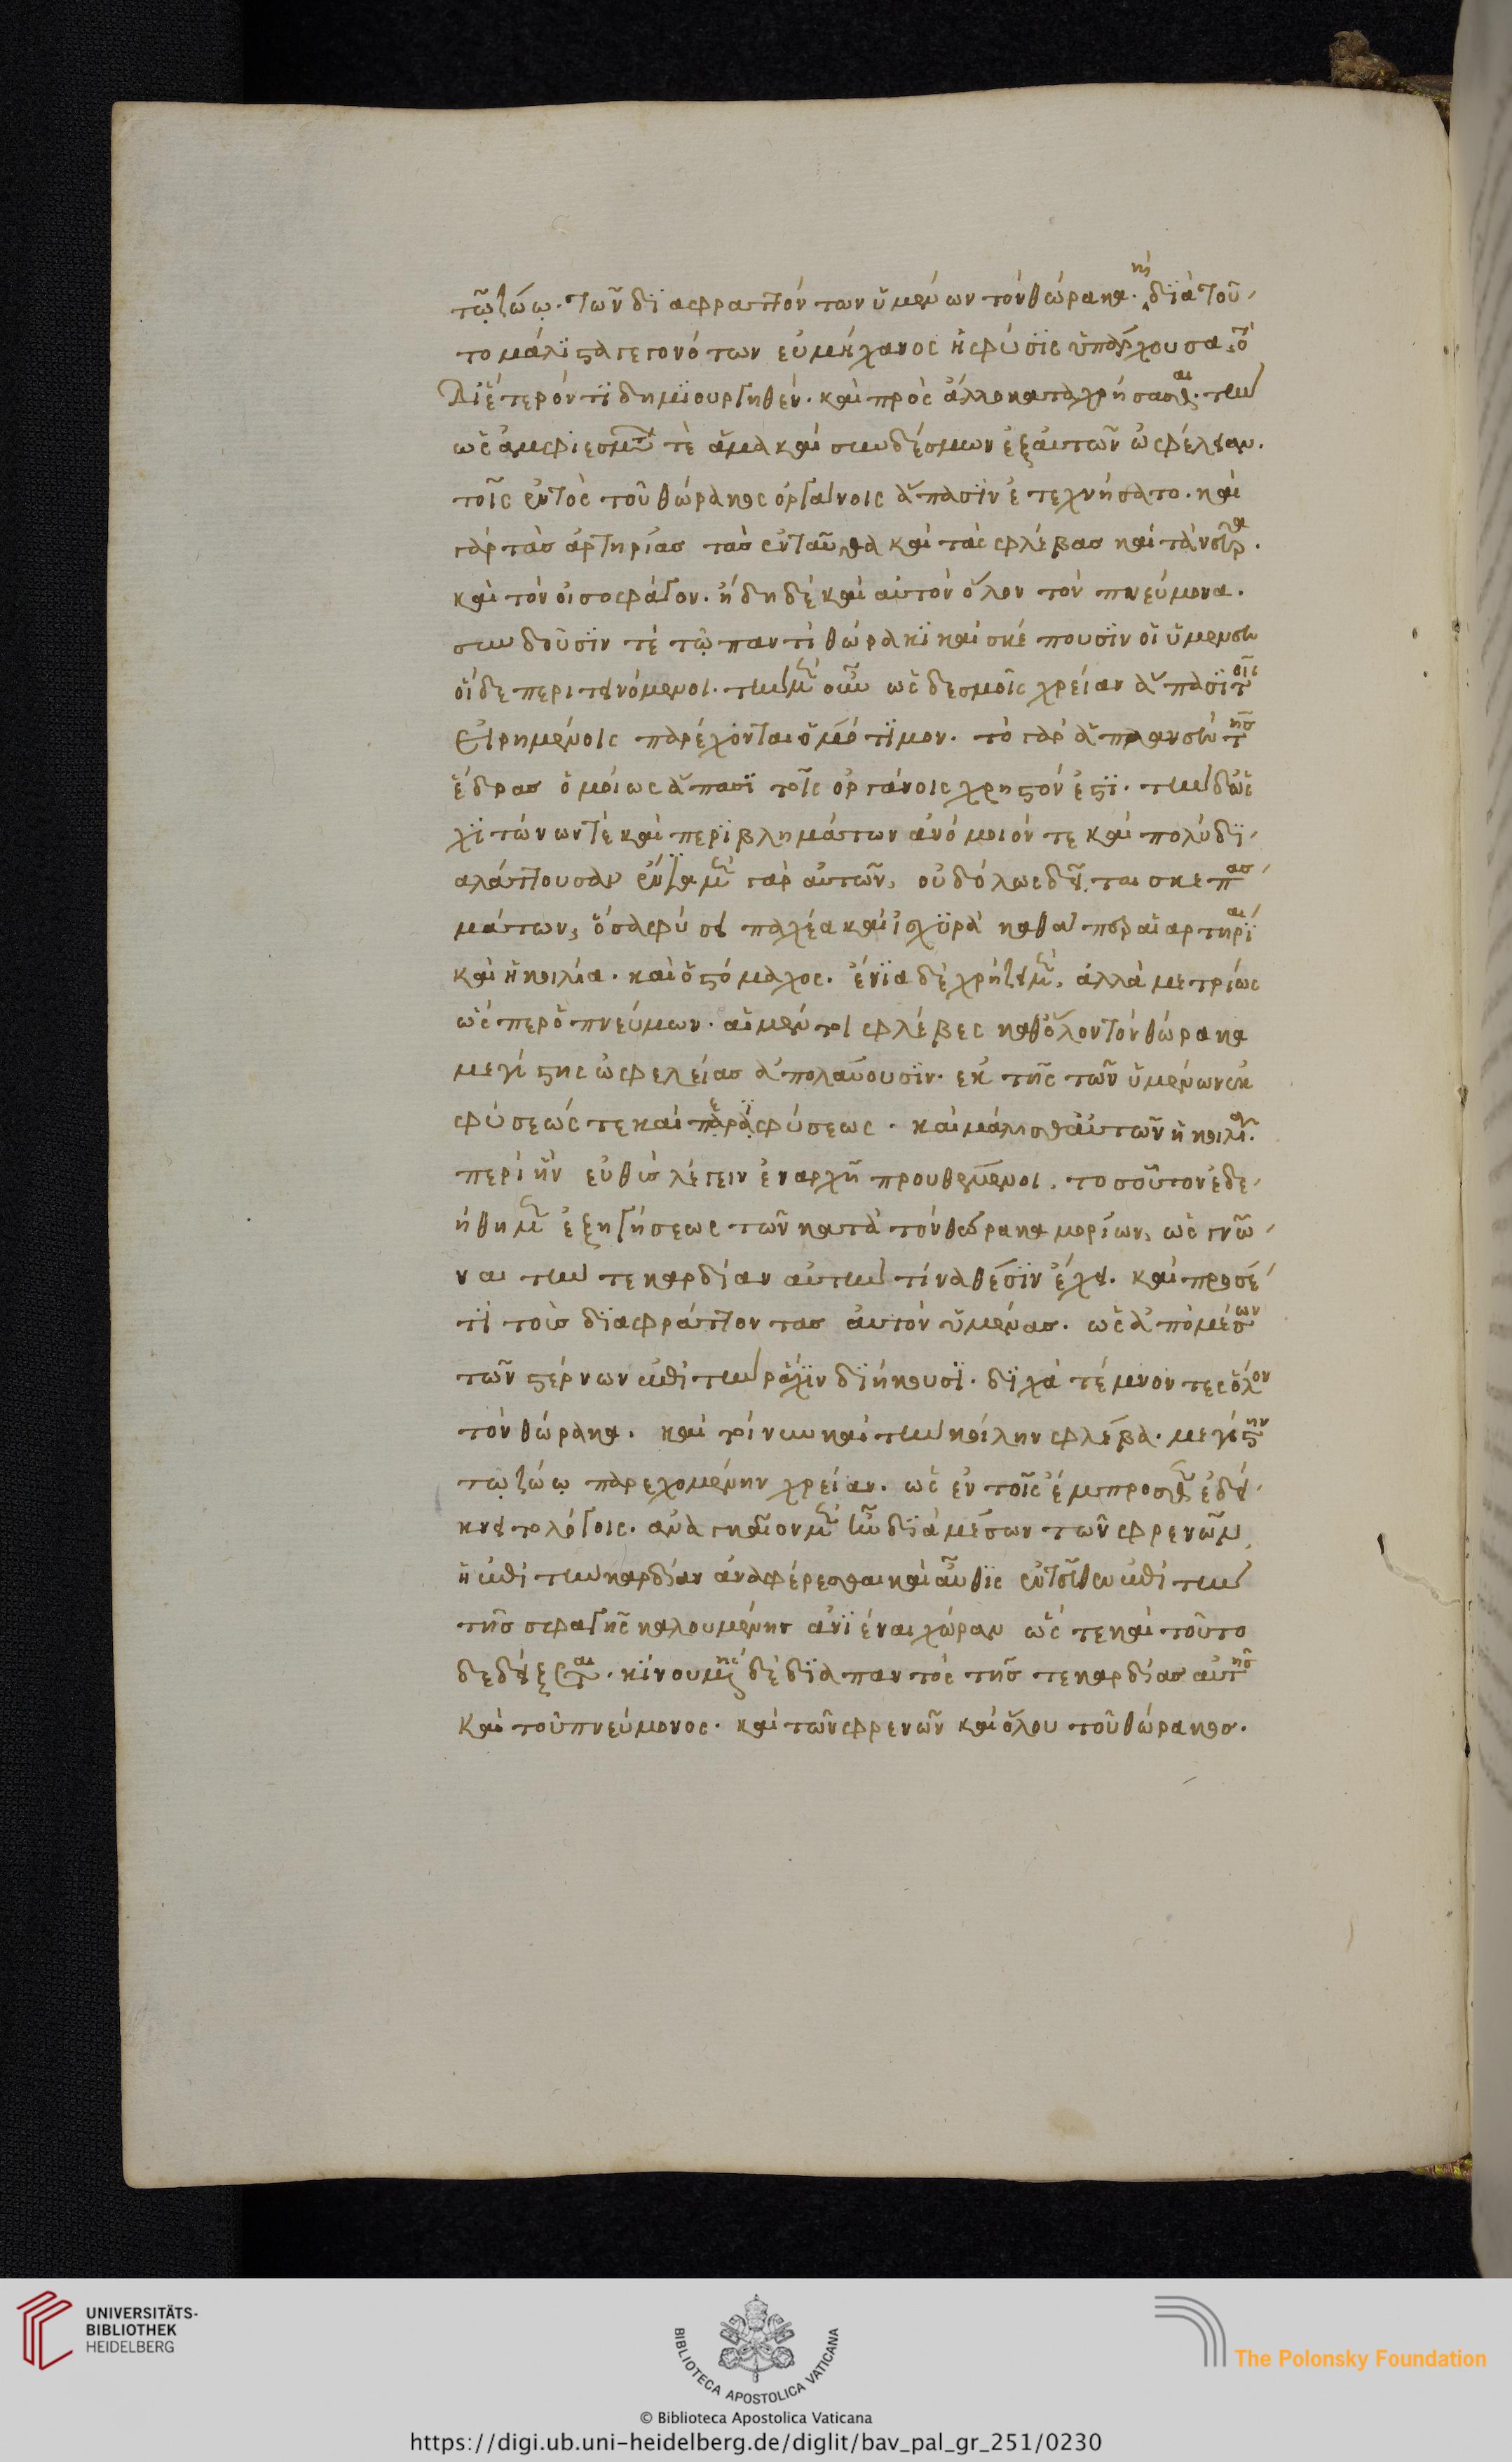 τῶ ζώω. τῶν διαφραττόντων ὑμένων τὸν θώρακα. διὰ τοῦ-
το μάλιστα γεγονότων εὐμήχανος ἡ φύσις ὑπάρχουσα τὸ
δι' ἕτερόν τι δημιουργηθὲν. καὶ πρὸς ἄλλο καταχρήσασθαι. τὴν
ὡς ἀμφιεσμάτων τὲ ἅμα καὶ συνδέσμων ἐξ αὐτῶν ὠφέλειαν.
τοῖς ἐντὸς τοῦ θώρακος ὀργάνοις ἅπασιν ἐτεχνήσατο. καὶ
γὰρ τὰσ ἀρτηρίασ τὰσ ἐνταῦθα καὶ τὰς φλέβασ καὶ τὰ νεῦρα.
καὶ τὸν οἰσοφάγον. ἤδη δὲ καὶ αὐτὸν ὅλον τὸν πνεύμονα.
συνδοῦσιν τὲ τῶ παντὶ θώρακι καὶ σκέπουσιν οἱ ὑμένες
οἵδε περιτεινόμενοι. τὴν μὲν οὖν ὡς δεσμοῖς χρείαν ἅπασι τοῖς
εἰρημένοις παρέχονται ὁμότιμον. τὸ γὰρ ἀπλανὲς τῆσ
ἕδρασ ὁμοίως ἅπασι τοῖς ὀργάνοις χρηστόν ἐστι. τὴν δ' ὡς
χιτώνων τὲ καὶ περιβλημάτων ἀνόμοιόν τε καὶ πολὺ δι-
αλάττουσαν ἔνια μὲν γὰρ αὐτῶν, οὐδ' ὅλως δεῖται σκεπασ-
μάτων, ὅσα φύσει παχέα καὶ ἰσχυρὰ καθάπερ αἱ ἀρτηρίαι
καὶ ἡ κοιλία. καὶ ὁ στόμαχος. ἔνια δὲ χρήζει μὲν, ἀλλὰ μετρίως
ὥσπερ ὁ πνεύμων. αἱ μέντοι φλέβες καθ' ὅλον τὸν θώρακα
μεγίστης ὠφελείασ ἀπολαύουσιν. ἐκ τῆς τῶν ὑμένων ἐκ
φύσεώς τε καὶ παραφύσεως. καὶ μάλισθ' αὐτῶν ἡ κοίλη.
περὶ ἧν εὐθὺσ λέγειν ἐν ἀρχῆ προυθέμενοι. τοσοῦτον ἐδε-
ήθημεν ἐξηγήσεως τῶν κατὰ τὸν θώρακα μορίων, ὡς γνῶ-
ναι τήν τε καρδίαν αὐτὴν τίνα θέσιν ἔχει. καὶ προσέ-
τι τοὺσ διαφράττοντασ αὐτὸν ὑμένασ. ὡς ἀπὸ μέσων
τῶν στέρνων ἐπὶ τὴν ράχιν διήκουσι. δίχα τέμνοντες ὅλον
τὸν θώρακα. καὶ τοίνυν καὶ τὴν κοίλην φλέβα. μεγίστην
τῶ ζώω παρεχομένην χρείαν. ὡς ἐν τοῖς ἔμπροσθεν ἐδεί-
κνυτο λόγοις. ἀναγκαῖον μὲν ἦν διὰ μέσων τῶν φρενῶν
ἢ ἐπὶ τὴν καρδίαν ἀναφέρεσθαι καὶ αὖθις ἐντεῦθεν ἐπὶ τὴν
τῆσ σφαγῆς καλουμένην ἀνιέναι χώραν ὥς τε καὶ τοῦτο
δέδεικται. κινουμένης δὲ διαπαντὸς τῆσ τε καρδίασ αὐτῆσ
καὶ τοῦ πνεύμονος. καὶ τῶν φρενῶν καὶ ὅλου τοῦ θώρακοσ.
UNIVERSITÄTS-
BIBLIOTHEK
HEIDELBERG
BIBLIOTECA APOSTOLICA VATICANA
The Polonsky Foundation
© Biblioteca Apostolica Vaticana
https://digi.ub.uni-heidelberg.de/diglit/bav_pal_gr_251/0230